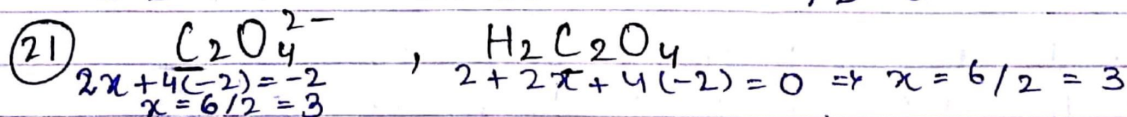 (21) C₂O₄²⁻ , H₂C₂O₄
2x+4(-2)=-2 2+2x+4(-2)=0 ⇒ x=6/2=3
x=6/2=3